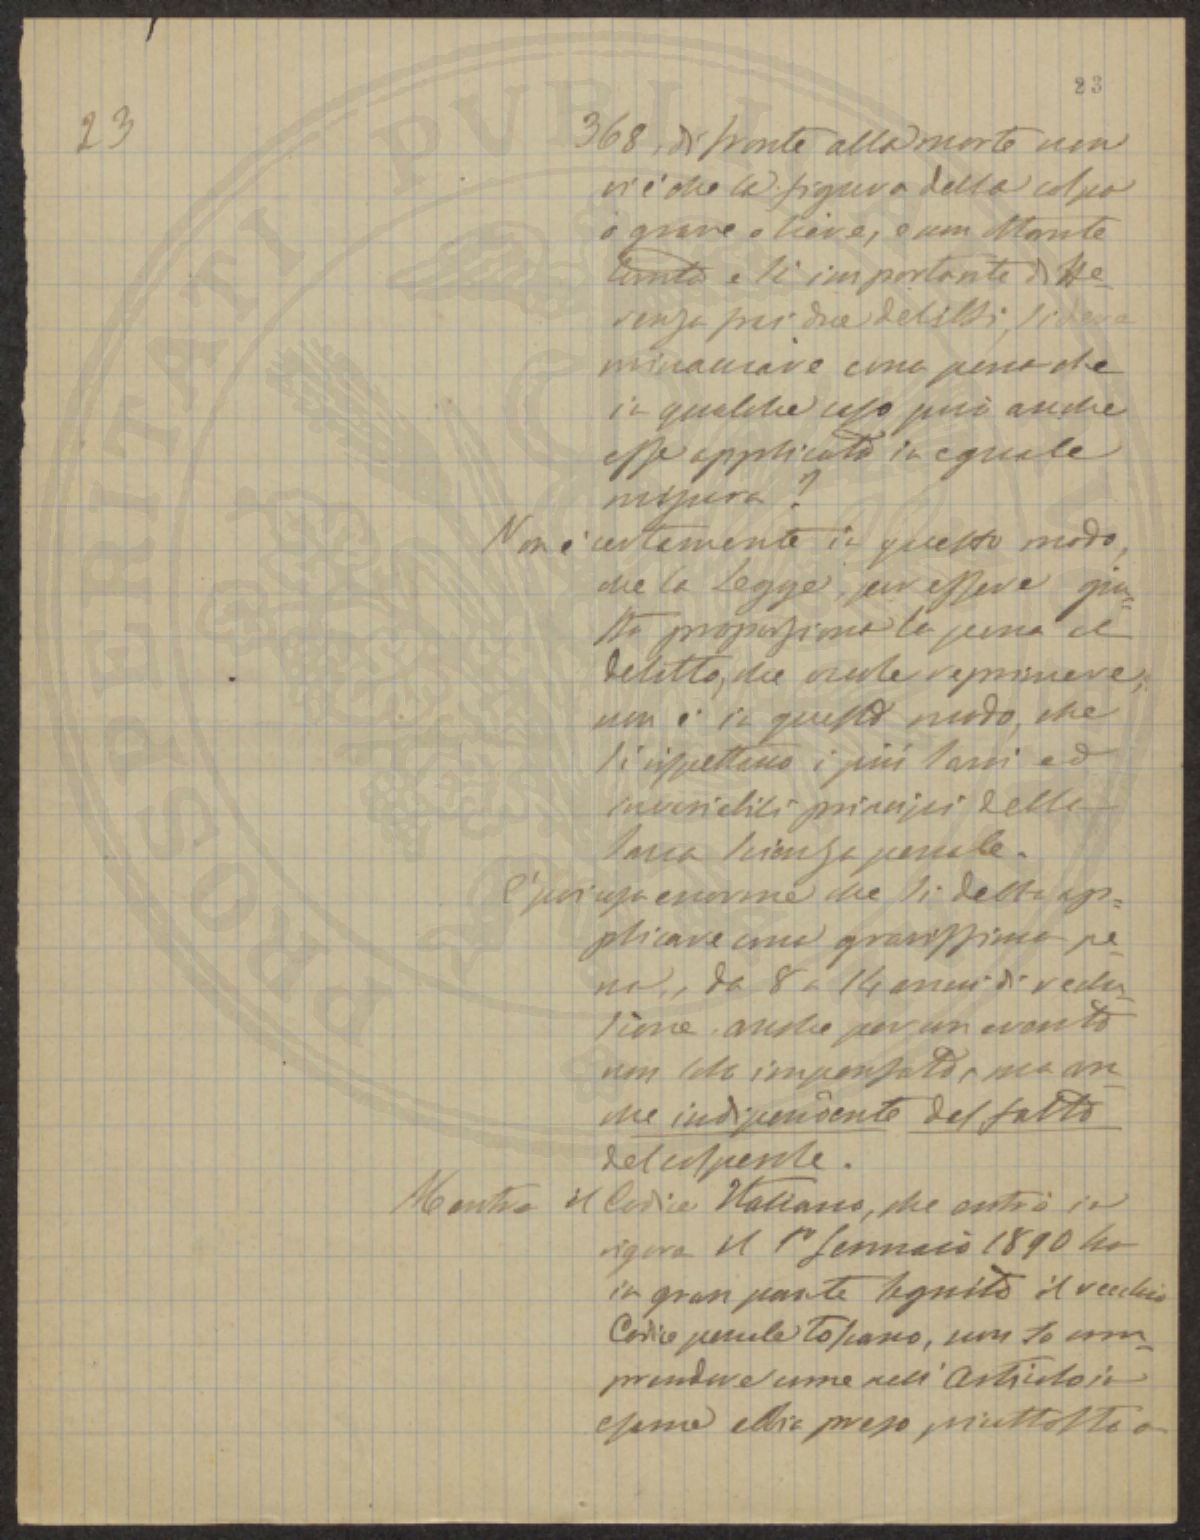 23
23
368, di fronte alla morte non
vi è che la figura della colpa
o grave o lieve, e non ostante
tanto e sì importante diffe-
renza fra i due delitti, si deve
minacciare una pena che
in qualche caso può anche
esse applicata in eguale
misura?
Non è certamente in questo modo,
che la Legge, per essere giu=
sta proporziona la pena al
delitto, che vuole reprimere;
non è in questo modo, che
si rispettano i più sani ed
invariabili principi della
sana scienza penale.
È poi cosa enorme che si debba ap=
plicare una gravissima pe-
na, da 8 a 14 anni di reclu-
sione anche per un evento
non solo impensato, ma an-
che indipendente del fatto
del colpevole.
Mentre il Codice Italiano, che entrò in
vigore il 1º Gennaio 1890 ha
in gran parte seguito il vecchio
Codice penale Toscano, non so com-
prendere come nell'Articolo in
esame abbia preso piuttosto a